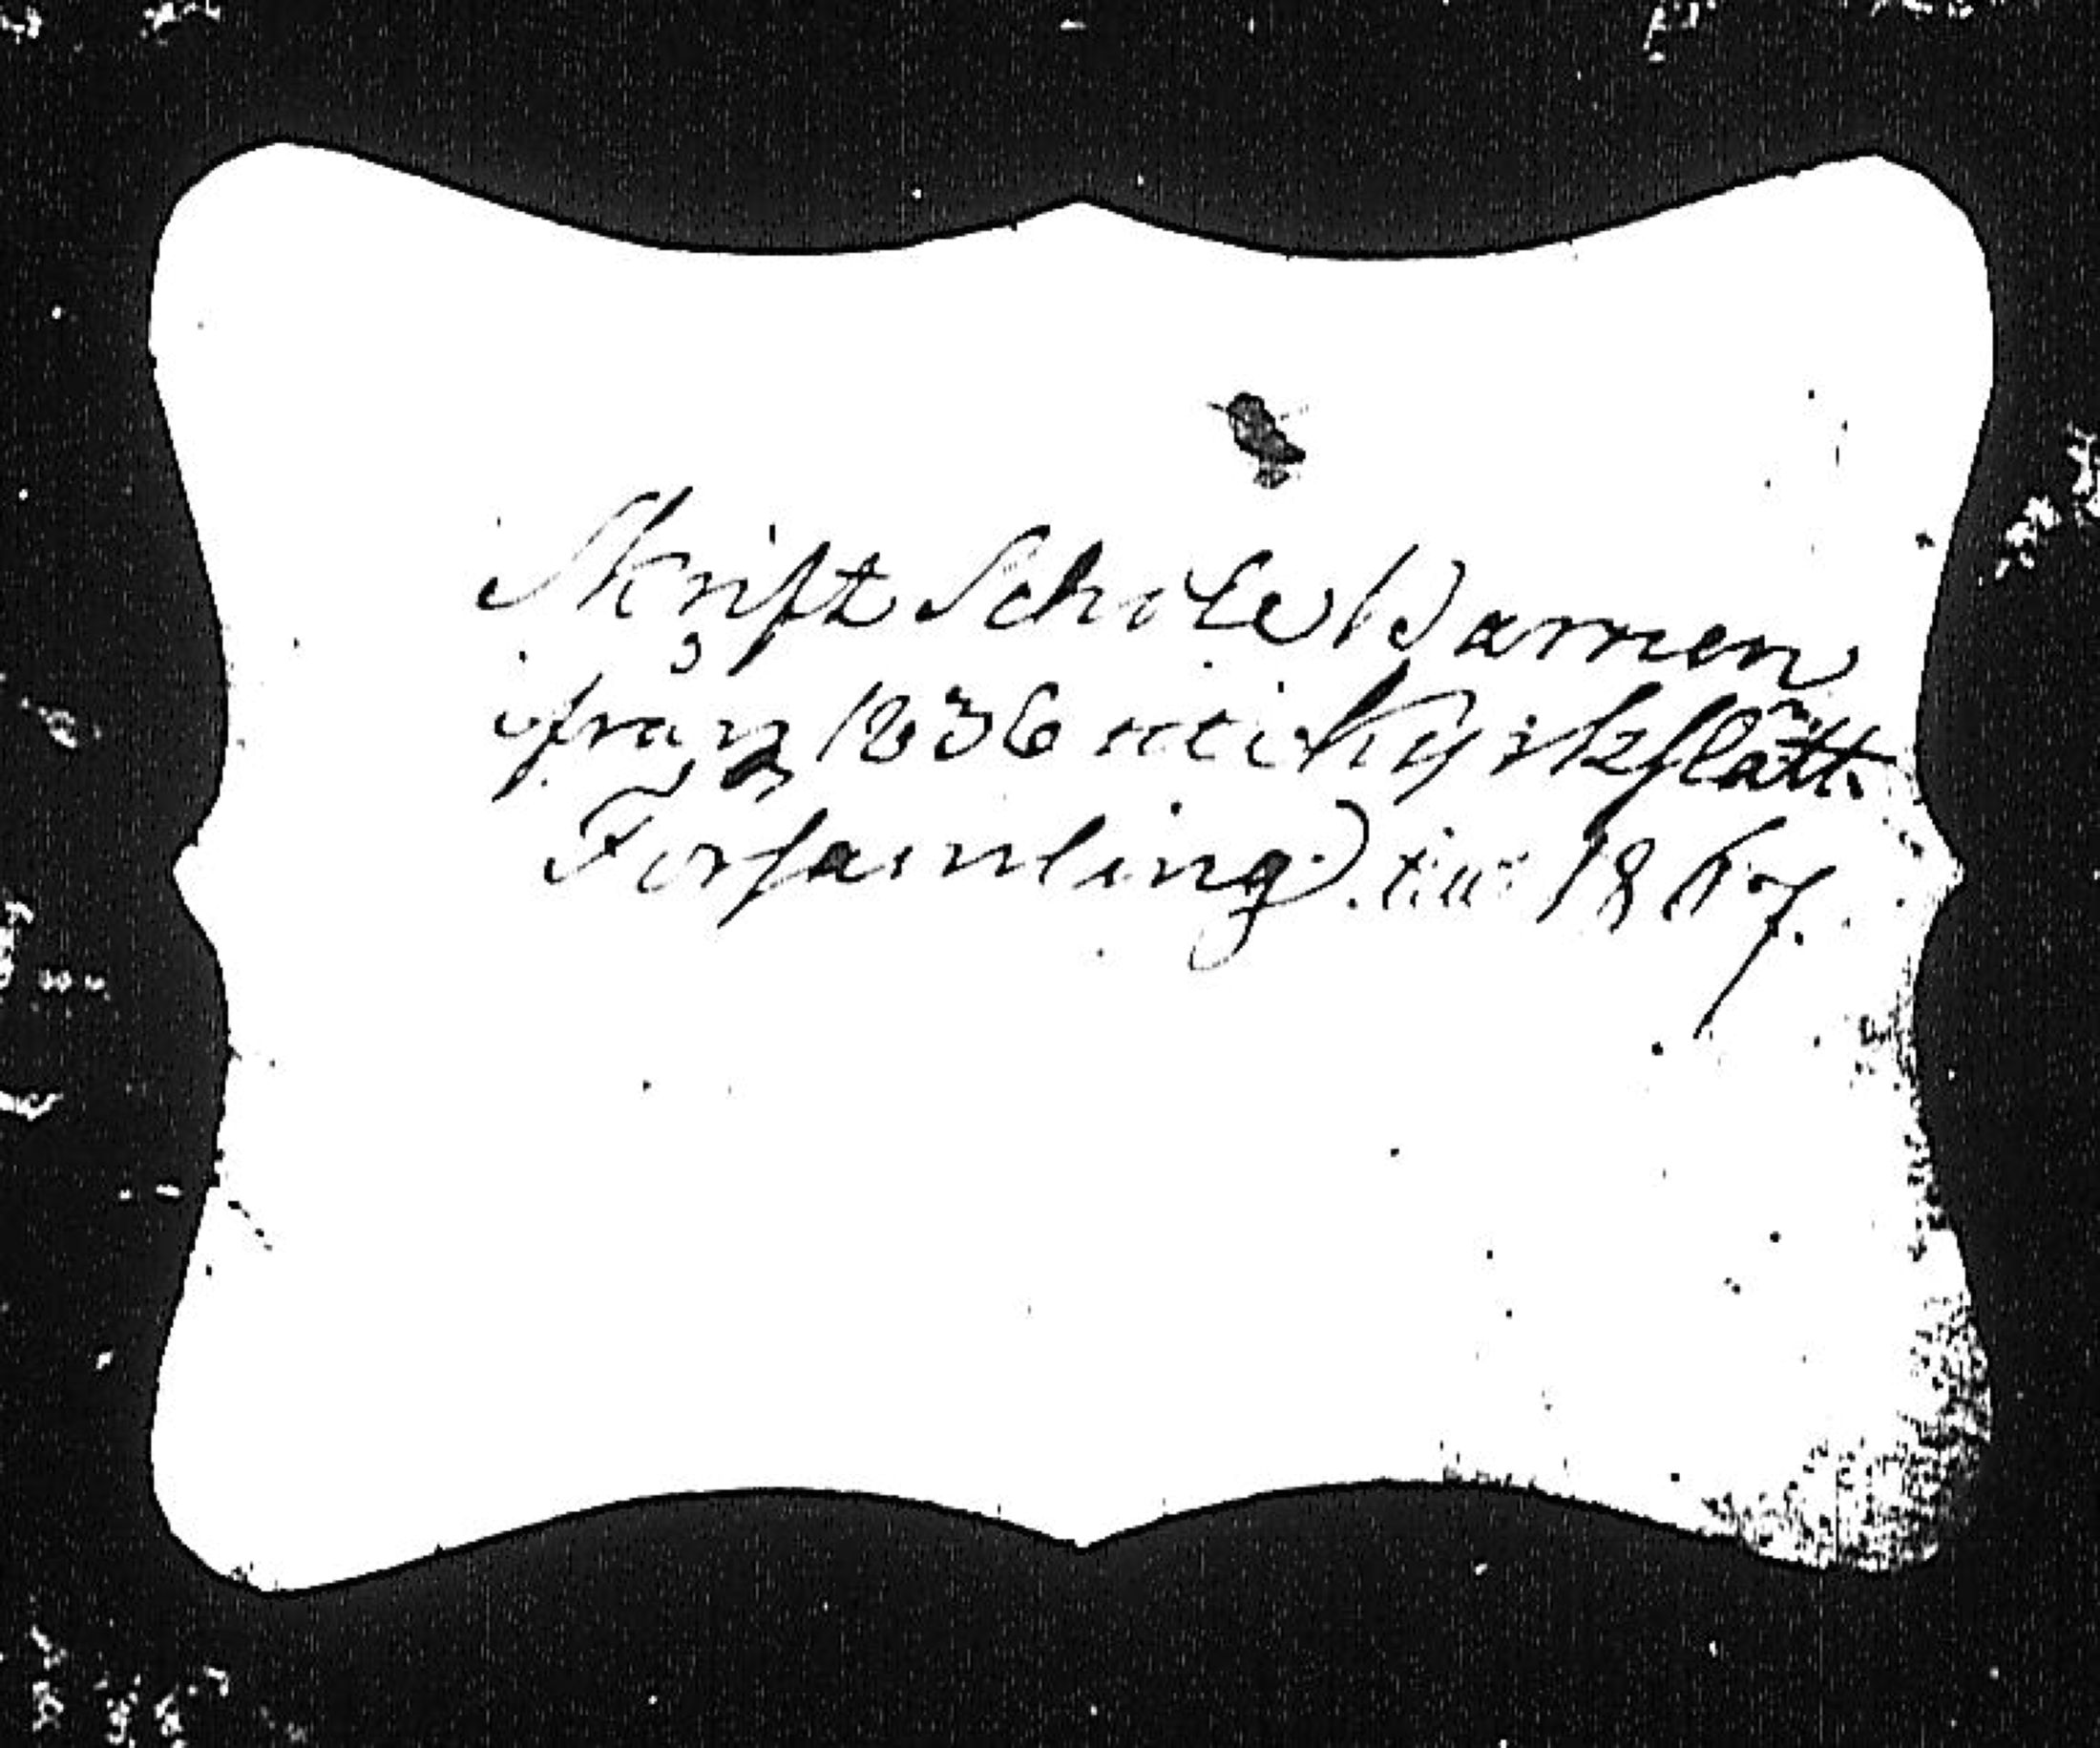 Skrift Schole Barnen
ifrån 1836 uti Kyrkslätt
Församling. till 1867.